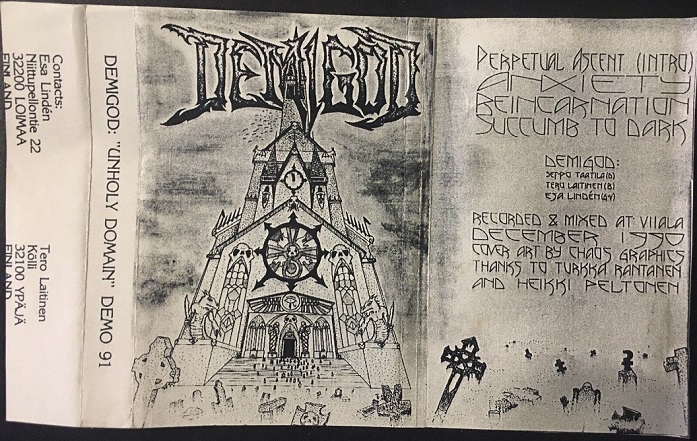 Contacts:
Esa Lindén
Niittupellontie 22
32200 LOIMAA
FINLAND
Tero Laitinen
Kölli
32100 YPÄJÄ
FINLAND
DEMIGOD: "UNHOLY DOMAIN" DEMO 91
DEMIGOD
PERPETUAL ASCENT (INTRO)
ANXIETY
REINCARNATION
SUCCUMB TO DARK
DEMIGOD:
SEPPO TAATILA (D)
TERO LAITINEN (B)
ESA LINDÉN (G,V)
RECORDED & MIXED AT VIIALA
DECEMBER 1990
COVER ART BY CHAOS GRAPHICS
THANKS TO TURKKA RANTANEN
AND HEIKKI PELTONEN